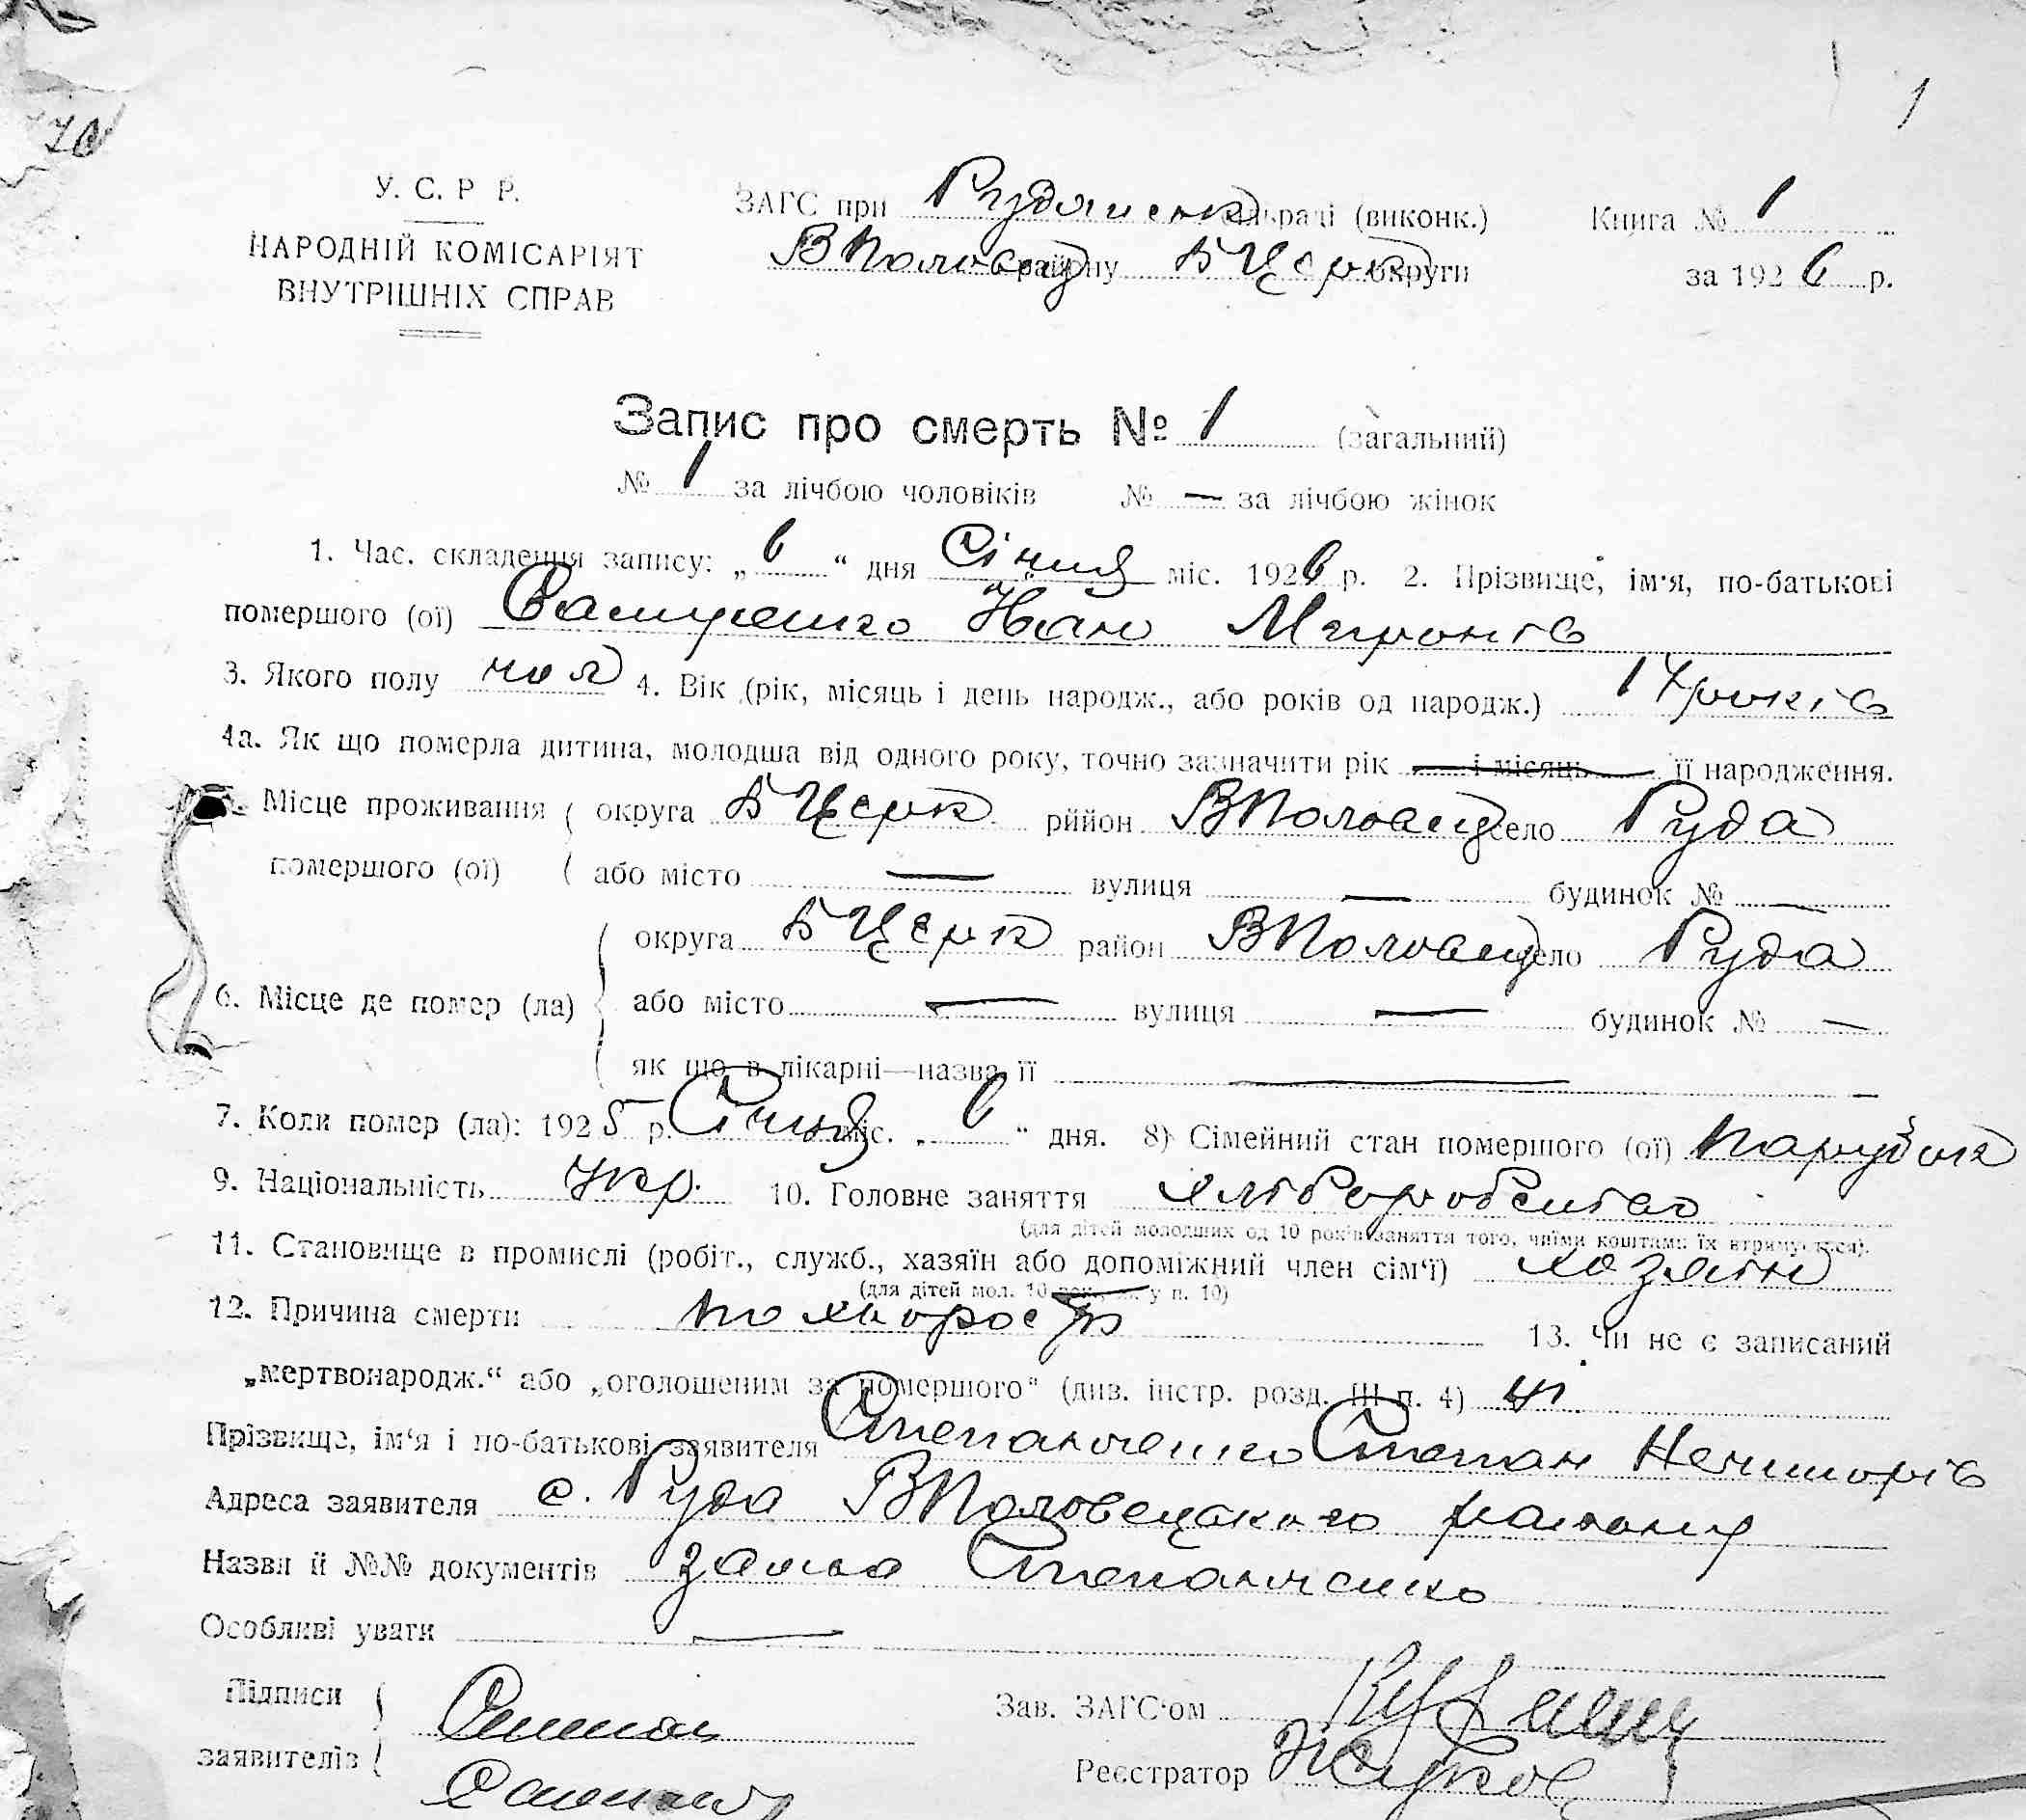 1
У. С. Р Р.
НАРОДНІЙ КОМІСАРІЯТ
ВНУТРІШНІХ СПРАВ
ЗАГС при Рудянськ сільраді (виконк.) Книга № 1
ВПоловец району БЦерк округи за 1926 р.
Запис про смерть № 1 (загальний)
№ 1 за лічбою чоловіків № — за лічбою жінок
1. Час. складення запису: „6“ дня Січня міс. 1926 р. 2. Прізвище, ім'я, по-батькові
помершого (ої) Іван Миронів
3. Якого полу чол 4. Вік (рік, місяць і день народж., або років од народж.) років
4а. Як що померла дитина, молодша від одного року, точно зазначити рік і місяць її народження.
Місце проживання округа БЦерк рййон ВПоловец село Руда
помершого (ої) або місто — вулиця — будинок № —
округа БЦерк район ВПоловец село Руда
6. Місце де помер (ла) або місто — вулиця — будинок № —
як що в лікарні—назва її —
7. Коли помер (ла): 1925 р. Січня міс. „6“ дня. 8) Сімейний стан помершого (ої) парубок
9. Національність Укр. 10. Головне заняття хліборобство
(для дітей молодших од 10 років заняття того, чиїми коштами їх втримується).
11. Становище в промислі (робіт., служб., хазяїн або допоміжний член сім'ї) хозяін
(для дітей мол. 10 рок., у п. 10)
12. Причина смерти 13. Чи не є записаний
„мертвонародж.“ або „оголошеним за помершого“ (див. інстр. розд. III п. 4) ні
Прізвище, ім'я і по-батькові заявителя Степанченко Степан Нечипорів
Адреса заявителя с. Руда ВПоловецького району
Назви й №№ документів заява Степанченко
Особливі уваги —
Підписи
заявителів
Зав. ЗАГС'ом
Реєстратор